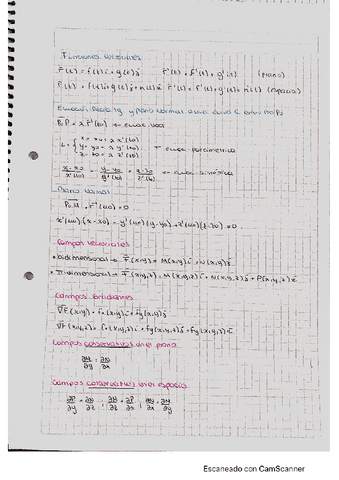 Funciones vectoriales
r̄(t) = f(t)i + g(t)j    r̄'(t) = f'(t) + g'(t)    (plano)
r̄(t) = f(t)i + g(t)j + h(t)k    r̄'(t) = f'(t) + g'(t) + h'(t)    (espacio)
Ecuación Recta tg y plano normal
P₀P = λ r̄'(t₀) → ecuac. vect
x = x₀ + λ x'(t₀)
L = y = y₀ + λ y'(t₀) → ecuac paramétrica
z = z₀ + λ z'(t₀)
x-x₀/x'(t₀) = y-y₀/y'(t₀) = z-z₀/z'(t₀) → ecuac simétrica
Plano Normal
P₀M · r̄'(t₀) = 0
x'(t₀)(x-x₀) + y'(t₀)(y-y₀) + z'(t₀)(z-z₀) = 0
Campos vectoriales
• bidimensional → F(x,y) = M(x,y)i + N(x,y)j
• Tridimensional → F(x,y,z) = M(x,y,z)i + N(x,y,z)j + P(x,y,z)k
Campos gradientes
∇F(x,y) = fx(x,y)i + fy(x,y)j
∇F(x,y,z) = fx(x,y,z)i + fy(x,y,z)j + fz(x,y,z)k
Campos conservativos en el plano
∂M/∂y = ∂N/∂x
Campos conservativos en el espacio
∂P/∂y = ∂N/∂z ; ∂M/∂z = ∂P/∂x ; ∂N/∂x = ∂M/∂y
Escaneado con CamScanner